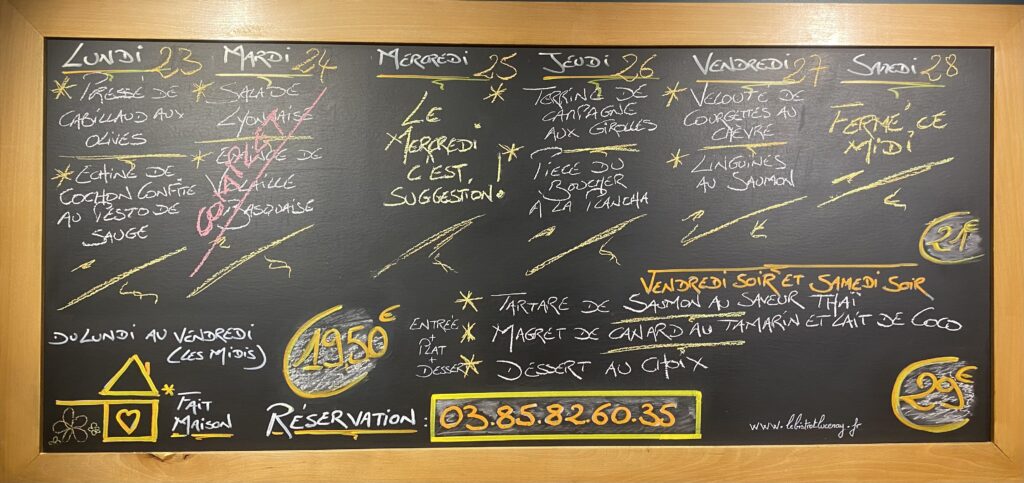 LUNDI 23
* PRESSÉ DE
CABILLAUD AUX
OLIVES
* ÉCHINE DE
COCHON CONFITE
AU PESTO DE
SAUGE
MARDI 24
* SALADE
LYONNAISE
* ÉMINCÉ DE
VOLAILLE
BASQUAISE
COMPLET
MERCREDI 25
LE
MERCREDI
C'EST
SUGGESTION!
JEUDI 26
* TERRINE DE
CAMPAGNE
AUX GIROLLES
* PIÈCE DU
BOUCHER
À LA PLANCHA
VENDREDI 27
* VELOUTÉ DE
COURGETTES AU
CHÈVRE
* LINGUINES
AU SAUMON
SAMEDI 28
FERMÉ, CE
MIDI
21€
DU LUNDI AU VENDREDI
(LES MIDIS)
19,50€
* FAIT
MAISON
VENDREDI SOIR ET SAMEDI SOIR
ENTRÉE
+
PLAT
+
DESSERT
* TARTARE DE SAUMON AU SAVEUR THAÏ
* MAGRET DE CANARD AU TAMARIN ET LAIT DE COCO
* DESSERT AU CHOIX
29€
RÉSERVATION : 03.85.82.60.35
www.lebistrotlucenay.fr